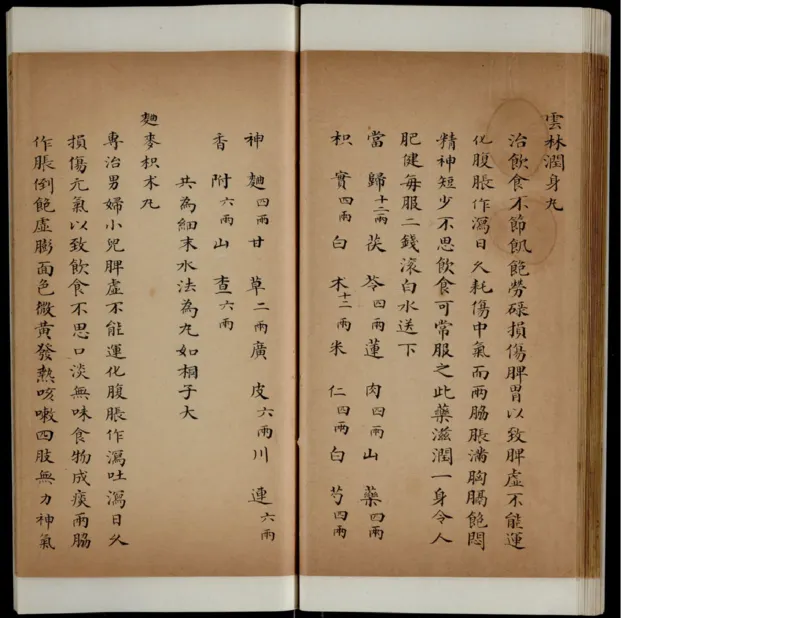 雲林潤身丸
治飲食不節飢飽勞碌損傷脾胃以致脾虛不能運
化腹脹作瀉日久耗傷中氣而兩脇脹滿胸膈飽悶
精神短少不思飲食可常服之此藥滋潤一身令人
肥健每服二錢滚白水送下
當歸十二兩茯苓四兩蓮肉四兩山藥四兩
枳實四兩白朮十二兩米仁四兩白芍四兩
神麯四兩甘草二兩廣皮六兩川連六兩
香附六兩山查六兩
共為細末水法為丸如桐子大
麯麥枳朮丸
專治男婦小兒脾虛不能運化腹脹作瀉吐瀉日久
損傷元氣以致飲食不思口淡無味食物成痰兩脇
作脹倒飽虛膨面色微黃發熱咳嗽四肢無力神氣